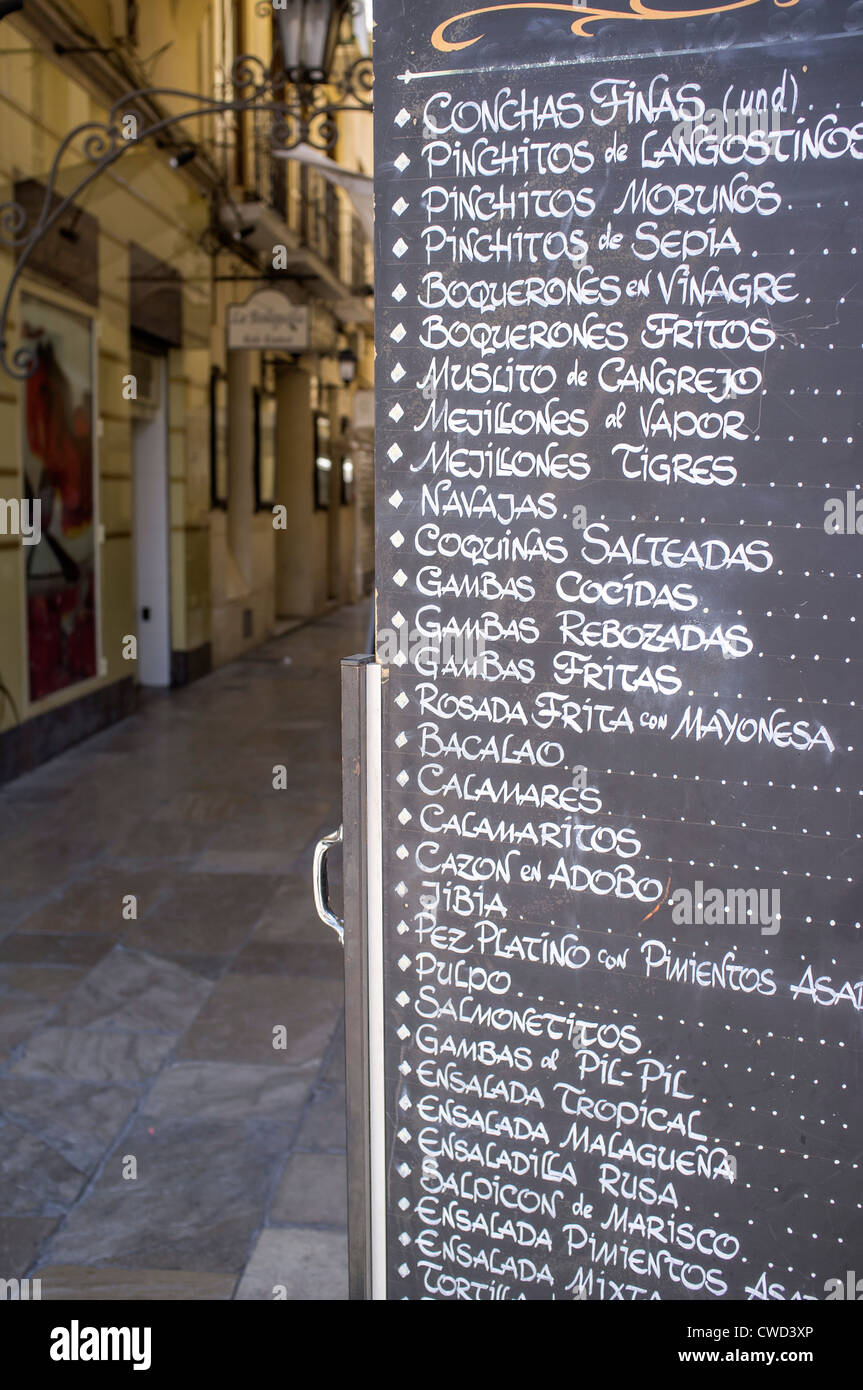 CONCHAS FINAS (und)
PINCHITOS de LANGOSTINOS
PINCHITOS MORUNOS
PINCHITOS de SEPIA
BOQUERONES en VINAGRE
BOQUERONES FRITOS
MUSLITO de CANGREJO
MEJILLONES al VAPOR
MEJILLONES TIGRES
NAVAJAS
COQUINAS SALTEADAS
GAMBAS COCIDAS
GAMBAS REBOZADAS
GAMBAS FRITAS
ROSADA FRITA con MAYONESA
BACALAO
CALAMARES
CALAMARITOS
CAZON en ADOBO
JIBIA
PEZ PLATINO con PIMIENTOS ASAD
PULPO
SALMONETITOS
GAMBAS al PIL-PIL
ENSALADA TROPICAL
ENSALADA MALAGUEÑA
ENSALADILLA RUSA
SALPICON de MARISCO
ENSALADA PIMIENTOS ASA
ENSALADA MIXTA
TORTILLA
alamy
Image ID: CWD3XP
www.alamy.com